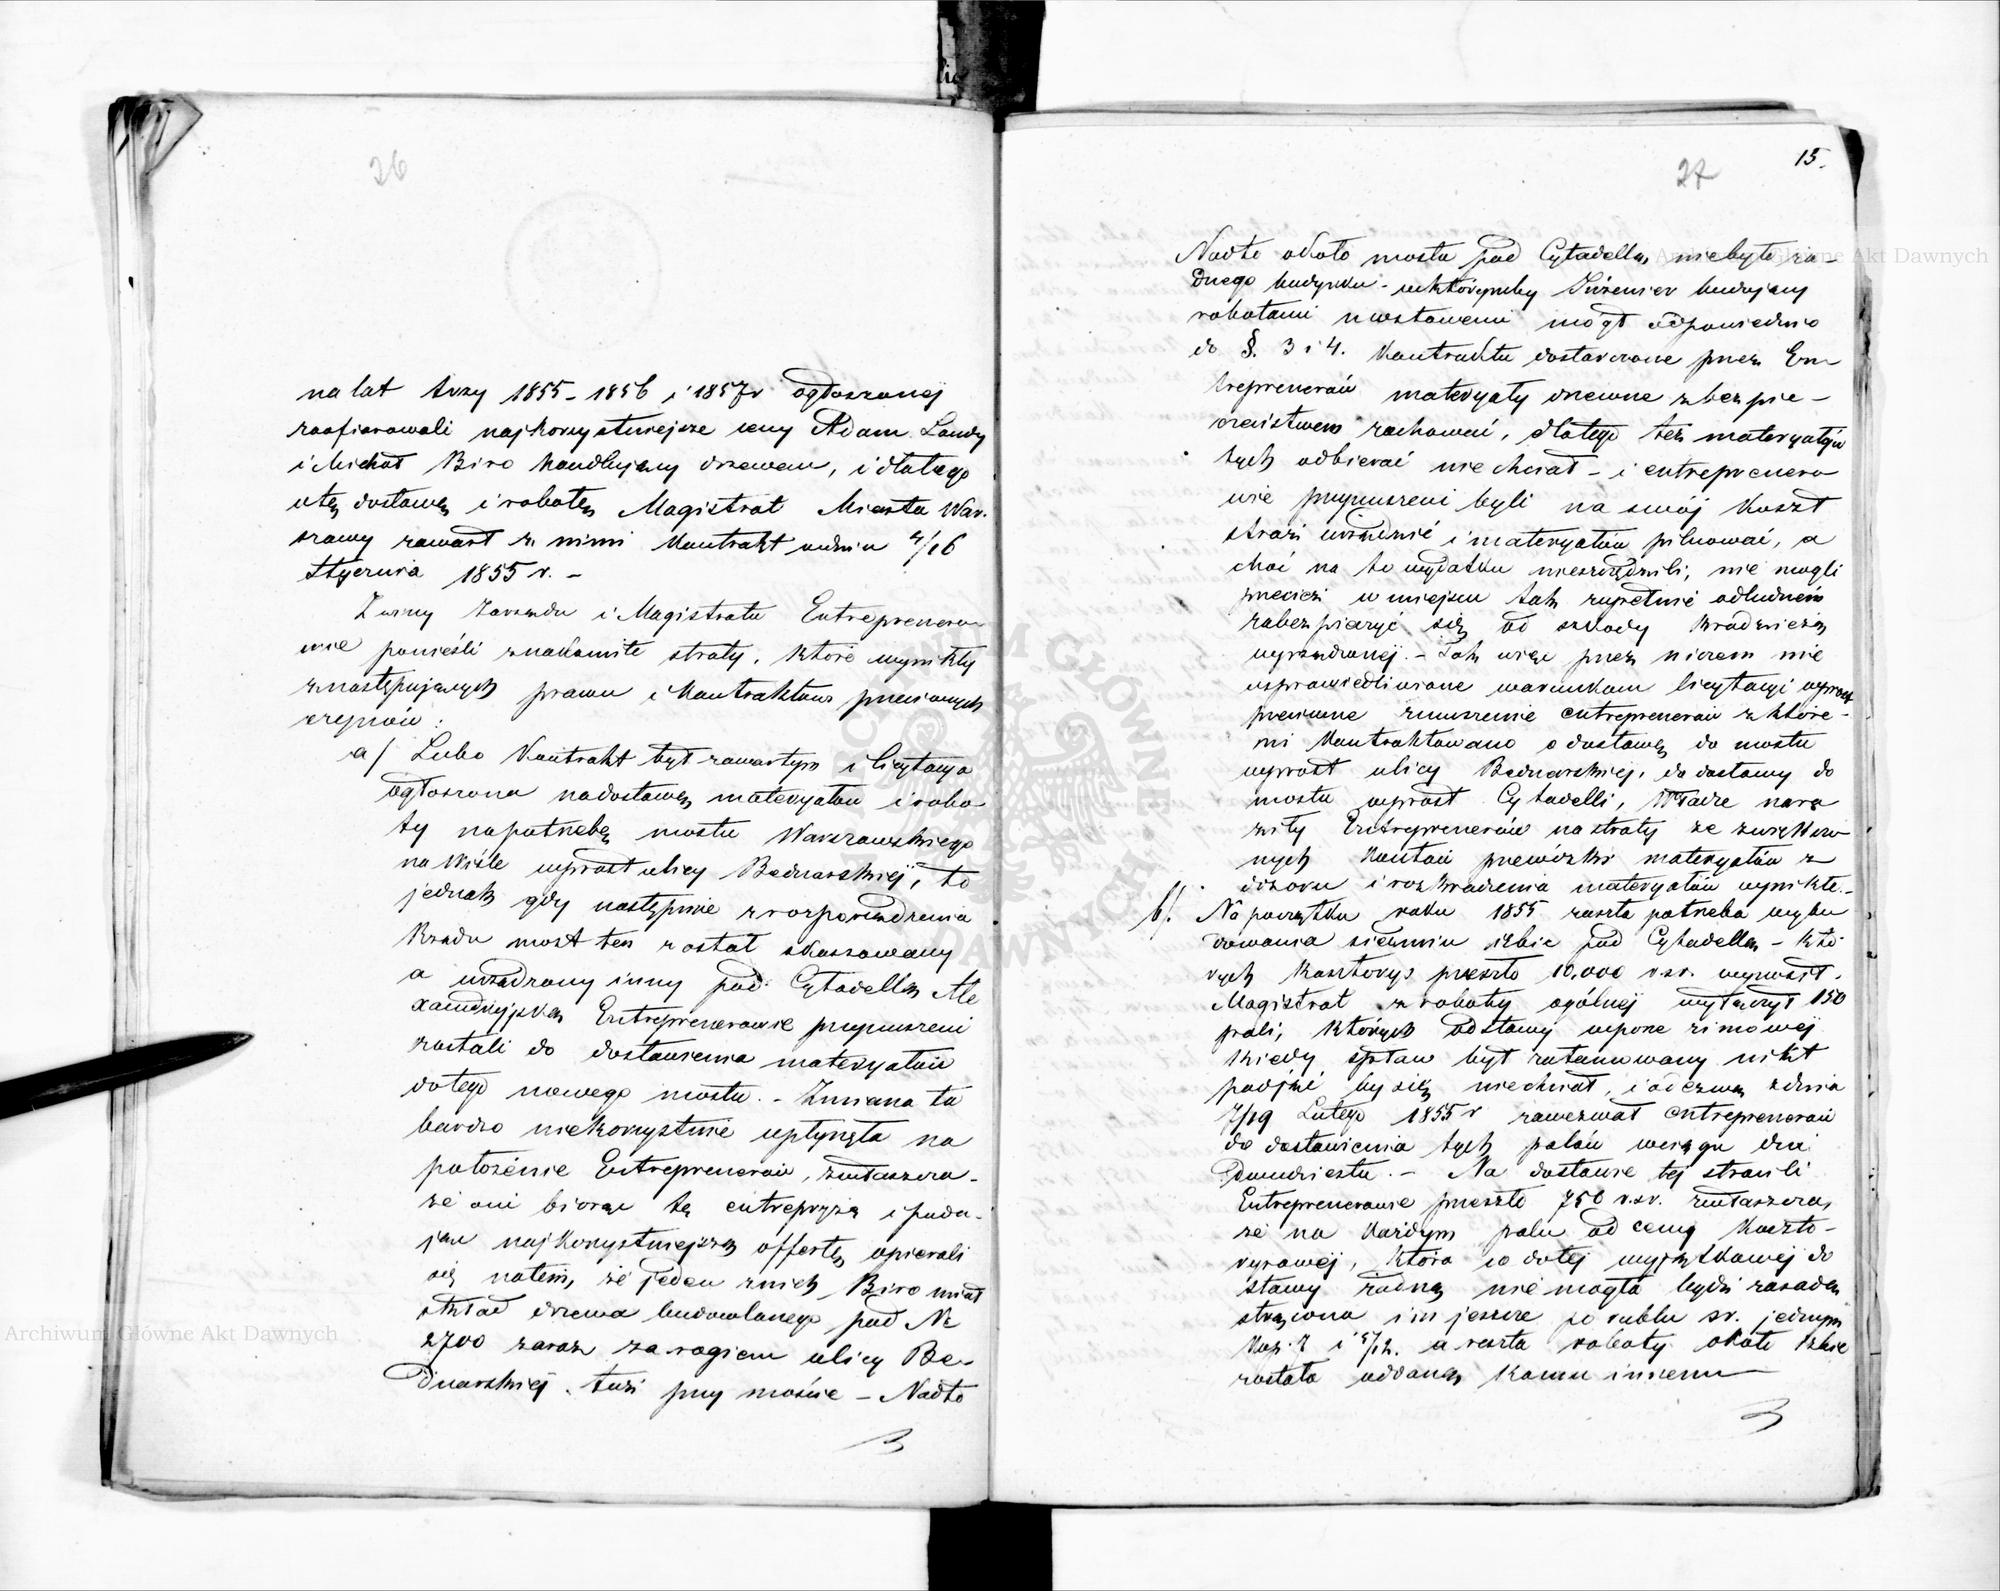 26
na lat trzy 1855 - 1856 i 1857 r ogłoszonej
zaofiarowali najkorzystniejsze ceny Adam Landy
i Michał Biro handlujący drzewem, i dlatego
o tę dostawę i robotę Magistrat Miasta War-
szawy zawarł z nimi Kontrakt w dniu 4/16
Stycznia 1855 r. -
Z winy Zarządu i Magistratu Entreprenero-
wie ponieśli znakomite straty, które wynikły
z następujących prawu i Kontraktowi przeciwnych
czynów:
a/ Lubo Kontrakt był zawartym i licytacya
ogłoszona na dostawę materyałów i robo
ty na potrzebę mostu Warszawskiego
na Wiśle wprost ulicy Bednarskiej, to
jednak gdy następnie z rozporządzenia
Rządu most ten został skassowany
a urządzony inny pod Cytadellą Ale
xandryjską Entreprenerowie przymuszeni
zostali do dostawienia materyałów
do tego nowego mostu. - Zmiana ta
bardzo niekorzystnie wpłynęła na
położenie Entreprenerów, zwłaszcza
że oni biorąc tę entrepryzę i poda-
jąc najkorzystniejszą offertę opierali
się na tem, że jeden z nich Biro miał
skład drzewa budowlanego pod Nr
2700 zaraz za rogiem ulicy Be-
dnarskiej, tuż przy moście - Nadto
27
15.
Nadto około mostu pod Cytadellą niebyło ża-
dnego budynku - w którymby Inżenier kierujący
robotami mostowemi mógł odpowiednio
do §. 3 i 4. Kontraktu dostarczone przez En
treprenerów materyały drzewne z bezpie-
czeństwem zachować, dlatego też materyałów
tych odbierać nie chciał - i entreprenero
wie przymuszeni byli na swój koszt
straż urządzić i materyałów pilnować, a
choć na to wydatku nieszczędzili, nie mogli
przecież w miejscu tak zupełnie odludnem
zabezpieczyć się od szkody kradzieżą
wyrządzonej. - Tak więc przez niczem nie
usprawiedliwione warunkom licytacyi wprost
przeciwne zmuszenie entreprenerów z które-
mi Kontraktowano o dostawę do mostu
wprost ulicy Bednarskiej, do dostawy do
mostu wprost Cytadelli, Władze nara
ziły Entreprenerów na straty ze zwiększo
nych kosztów przewózki materyałów z
dozoru i rozkradzenia materyałów wynikłe. -
b/. Na początku roku 1855 zaszła potrzeba wybu
dowania siedmiu izbic pod Cytadellą - któ
rych kosztorys przeszło 10,000 r.sr. wynosił.
Magistrat z roboty ogólnej wyłączył 150
pali, których dostawy w porze zimowej
kiedy spław był zatamowany nikt
podjąć by się nie chciał, i odezwą z dnia
7/19 Lutego 1855 r zawezwał entreprenerów
do dostawienia tych palów w ciągu dni
dwudziestu. - Na dostawie tej stracili
Entreprenerowie przeszło 750 r.sr. zwłaszcza,
że na każdym palu od ceny koszto-
rysowej, która co do tej wyjątkowej do
stawy żadną nie mogła być zasadą
strącono im jeszcze po rublu sr. jednym
kop. 7 i a reszta roboty około izbic
została oddaną komu innemu
Archiwum Główne Akt Dawnych
Archiwum Główne Akt Dawnych
ARCHIWUM GŁÓWNE AKT DAWNYCH